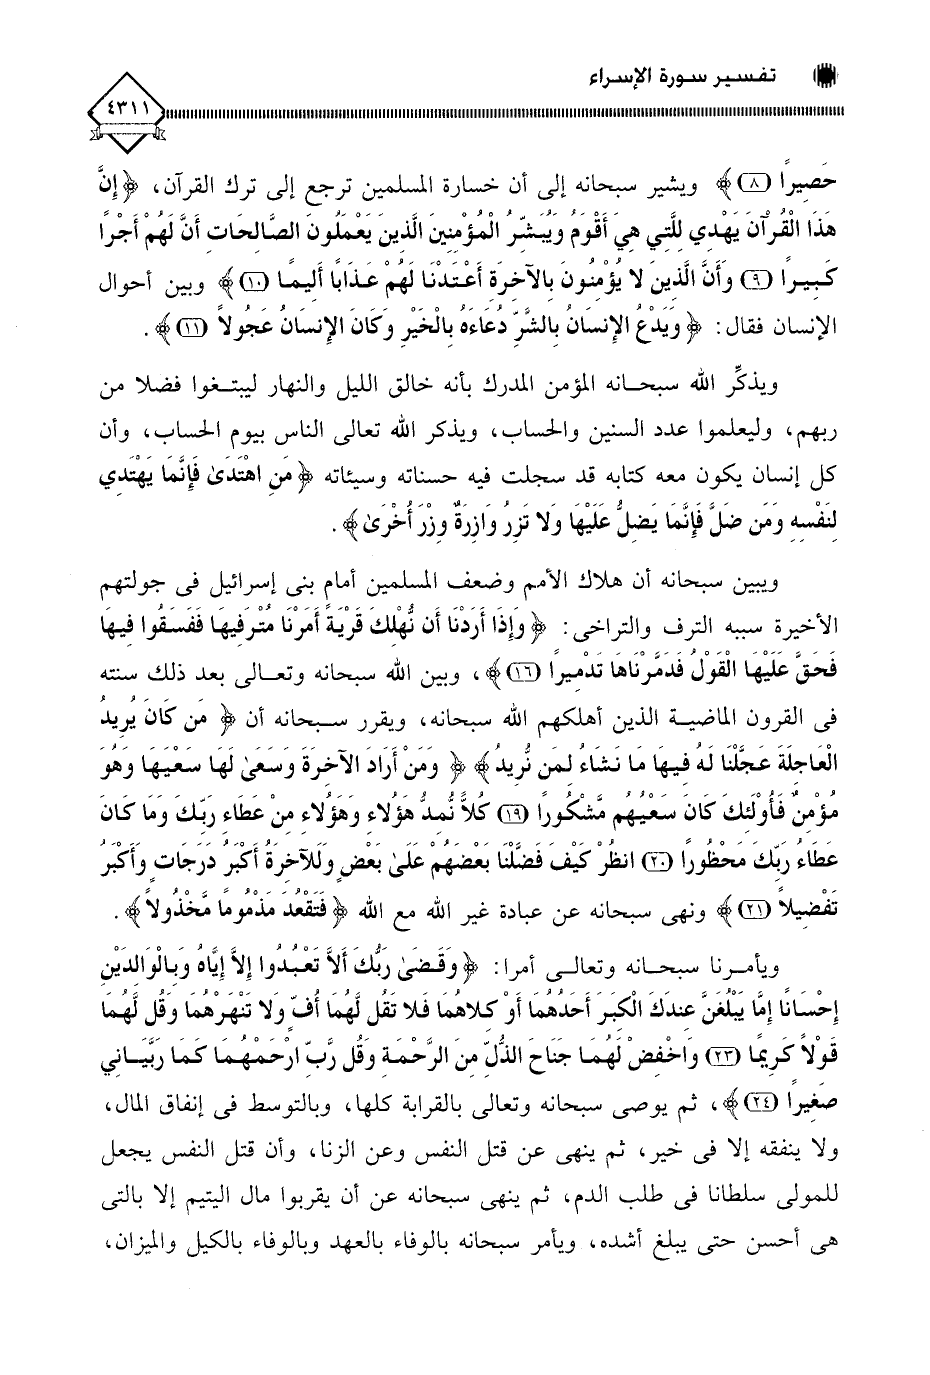 تفسير سورة الإسراء
٤٣١١
حَصِيرًا (٨)﴾ ويشير سبحانه إلى أن خسارة المسلمين ترجع إلى ترك القرآن، ﴿إِنَّ
هَذَا الْقُرْآنَ يَهْدِي لِلَّتِي هِيَ أَقْوَمُ وَيُبَشِّرُ الْمُؤْمِنِينَ الَّذِينَ يَعْمَلُونَ الصَّالِحَاتِ أَنَّ لَهُمْ أَجْرًا
كَبِيرًا (٩) وَأَنَّ الَّذِينَ لا يُؤْمِنُونَ بِالآخِرَةِ أَعْتَدْنَا لَهُمْ عَذَابًا أَلِيمًا (١٠)﴾ وبين أحوال
الإنسان فقال: ﴿وَيَدْعُ الإِنسَانُ بِالشَّرِّ دُعَاءَهُ بِالْخَيْرِ وَكَانَ الإِنسَانُ عَجُولاً (١١)﴾.
ويذكِّر الله سبحانه المؤمن المدرك بأنه خالق الليل والنهار ليبتغوا فضلا من
ربهم، وليعلموا عدد السنين والحساب، ويذكر الله تعالى الناس بيوم الحساب، وأن
كل إنسان يكون معه كتابه قد سجلت فيه حسناته وسيئاته ﴿مَنِ اهْتَدَىٰ فَإِنَّمَا يَهْتَدِي
لِنَفْسِهِ وَمَن ضَلَّ فَإِنَّمَا يَضِلُّ عَلَيْهَا وَلا تَزِرُ وَازِرَةٌ وِزْرَ أُخْرَىٰ﴾.
ويبين سبحانه أن هلاك الأمم وضعف المسلمين أمام بنى إسرائيل فى جولتهم
الأخيرة سببه الترف والتراخى: ﴿وَإِذَا أَرَدْنَا أَن نُّهْلِكَ قَرْيَةً أَمَرْنَا مُتْرَفِيهَا فَفَسَقُوا فِيهَا
فَحَقَّ عَلَيْهَا الْقَوْلُ فَدَمَّرْنَاهَا تَدْمِيرًا (١٦)﴾، وبين الله سبحانه وتعالى بعد ذلك سنته
فى القرون الماضية الذين أهلكهم الله سبحانه، ويقرر سبحانه أن ﴿مَن كَانَ يُرِيدُ
الْعَاجِلَةَ عَجَّلْنَا لَهُ فِيهَا مَا نَشَاءُ لِمَن نُّرِيدُ﴾ ﴿وَمَنْ أَرَادَ الآخِرَةَ وَسَعَىٰ لَهَا سَعْيَهَا وَهُوَ
مُؤْمِنٌ فَأُوْلَئِكَ كَانَ سَعْيُهُم مَّشْكُورًا (١٩) كُلاًّ نُّمِدُّ هَؤُلاءِ وَهَؤُلاءِ مِنْ عَطَاءِ رَبِّكَ وَمَا كَانَ
عَطَاءُ رَبِّكَ مَحْظُورًا (٢٠) انظُرْ كَيْفَ فَضَّلْنَا بَعْضَهُمْ عَلَىٰ بَعْضٍ وَلَلآخِرَةُ أَكْبَرُ دَرَجَاتٍ وَأَكْبَرُ
تَفْضِيلاً (٢١)﴾ ونهى سبحانه عن عبادة غير الله مع الله ﴿فَتَقْعُدَ مَذْمُومًا مَّخْذُولاً﴾.
ويأمرنا سبحانه وتعالى أمرا: ﴿وَقَضَىٰ رَبُّكَ أَلاَّ تَعْبُدُوا إِلاَّ إِيَّاهُ وَبِالْوَالِدَيْنِ
إِحْسَانًا إِمَّا يَبْلُغَنَّ عِندَكَ الْكِبَرَ أَحَدُهُمَا أَوْ كِلاهُمَا فَلا تَقُل لَّهُمَا أُفٍّ وَلا تَنْهَرْهُمَا وَقُل لَّهُمَا
قَوْلاً كَرِيمًا (٢٣) وَاخْفِضْ لَهُمَا جَنَاحَ الذُّلِّ مِنَ الرَّحْمَةِ وَقُل رَّبِّ ارْحَمْهُمَا كَمَا رَبَّيَانِي
صَغِيرًا (٢٤)﴾، ثم يوصى سبحانه وتعالى بالقرابة كلها، وبالتوسط فى إنفاق المال،
ولا ينفقه إلا فى خير، ثم ينهى عن قتل النفس وعن الزنا، وأن قتل النفس يجعل
للمولى سلطانا فى طلب الدم، ثم ينهى سبحانه عن أن يقربوا مال اليتيم إلا بالتى
هى أحسن حتى يبلغ أشده، ويأمر سبحانه بالوفاء بالعهد وبالوفاء بالكيل والميزان،